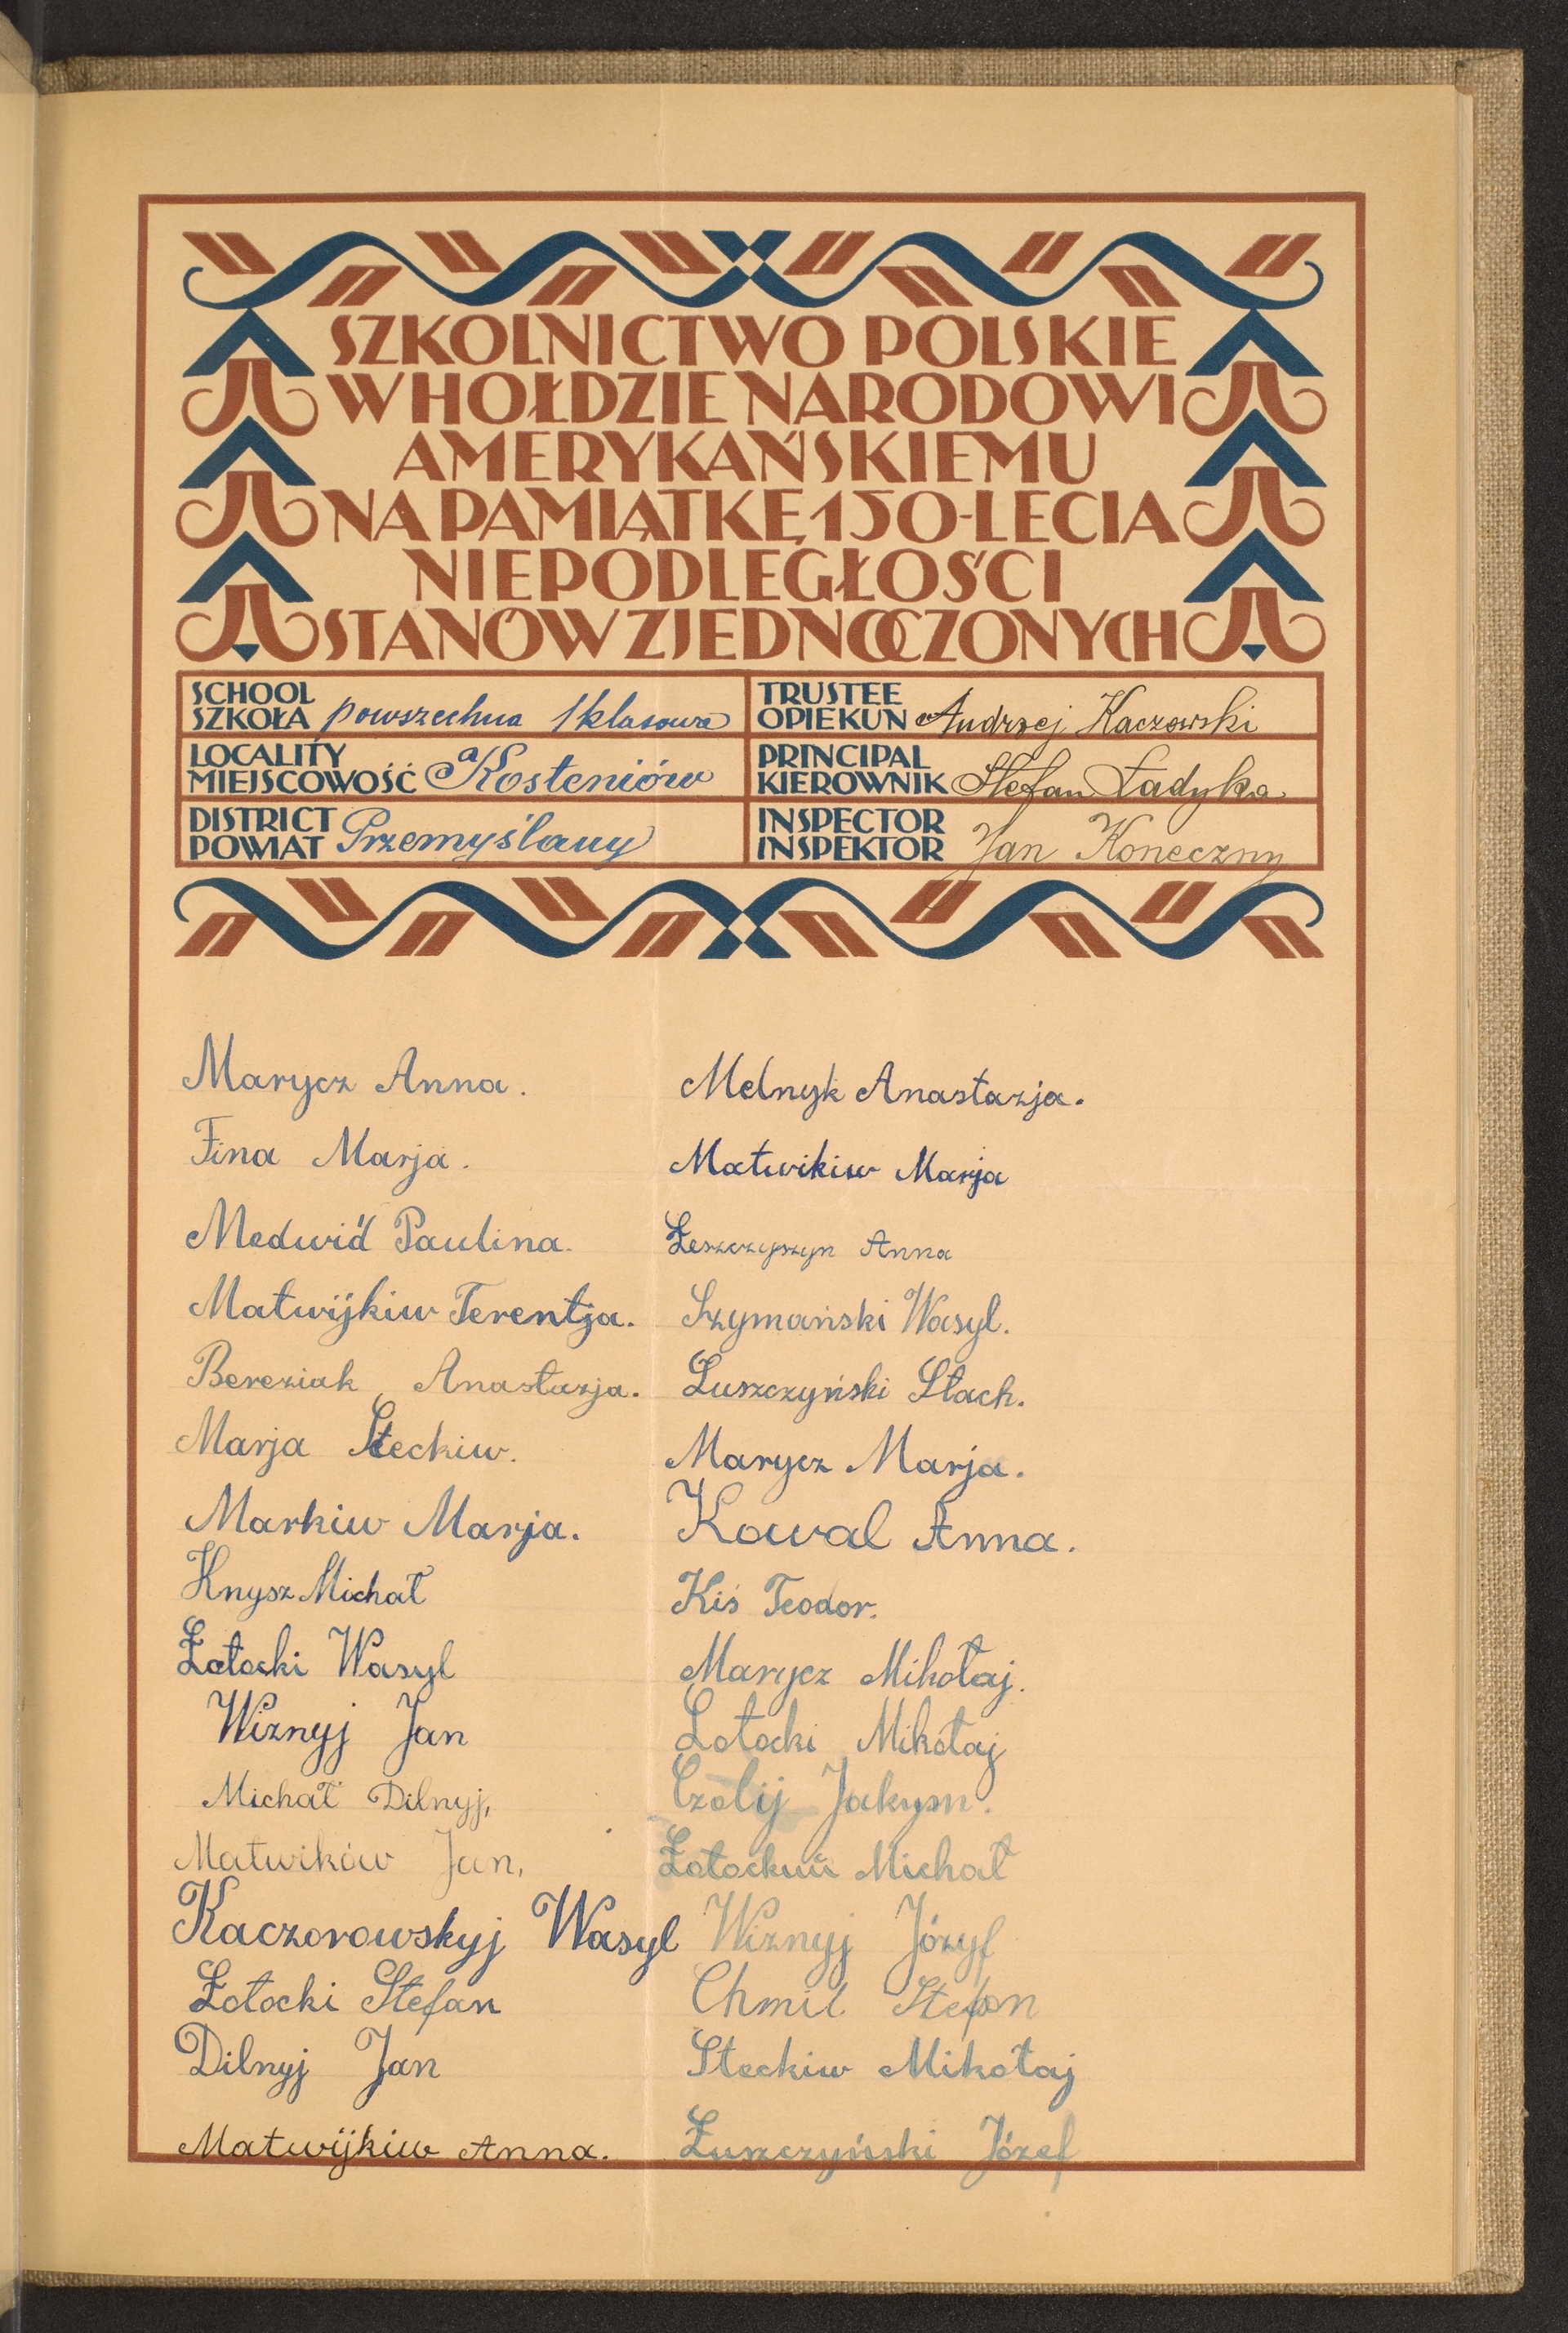 SZKOLNICTWO POLSKIE
W HOŁDZIE NARODOWI
AMERYKAŃSKIEMU
NA PAMIĄTKĘ 150-LECIA
NIEPODLEGŁOŚCI
STANÓW ZJEDNOCZONYCH
SCHOOL
SZKOŁA powszechna 1 klasowa
TRUSTEE
OPIEKUN Andrzej Kaczowski
LOCALITY
MIEJSCOWOŚĆ Kosteniów
PRINCIPAL
KIEROWNIK Stefan Ładyka
DISTRICT
POWIAT Przemyślany
INSPECTOR
INSPEKTOR Jan Koneczny
Marycz Anna.
Fina Marja.
Medwid Paulina.
Matwijkiw Terentja.
Bereziak Anastazja.
Marja Steckiw.
Markiw Marja.
Knysz Michał
Łotocki Wasyl
Wiznyj Jan
Michał Dilnyj,
Matwików Jan,
Kaczorowskyj Wasyl
Łotocki Stefan
Dilnyj Jan
Matwijkiw Anna.
Melnyk Anastazja.
Matwikiw Marja
Łeszczyszyn Anna
Szymański Wasyl.
Łuszczyński Stach.
Marycz Marja.
Kowal Anna.
Kiś Teodor.
Marycz Mikołaj.
Łotocki Mikołaj
Czolij Jakym.
Michał
Wiznyj Józyf
Chmil Stefan
Steckiw Mikołaj
Łuszczyński Józef